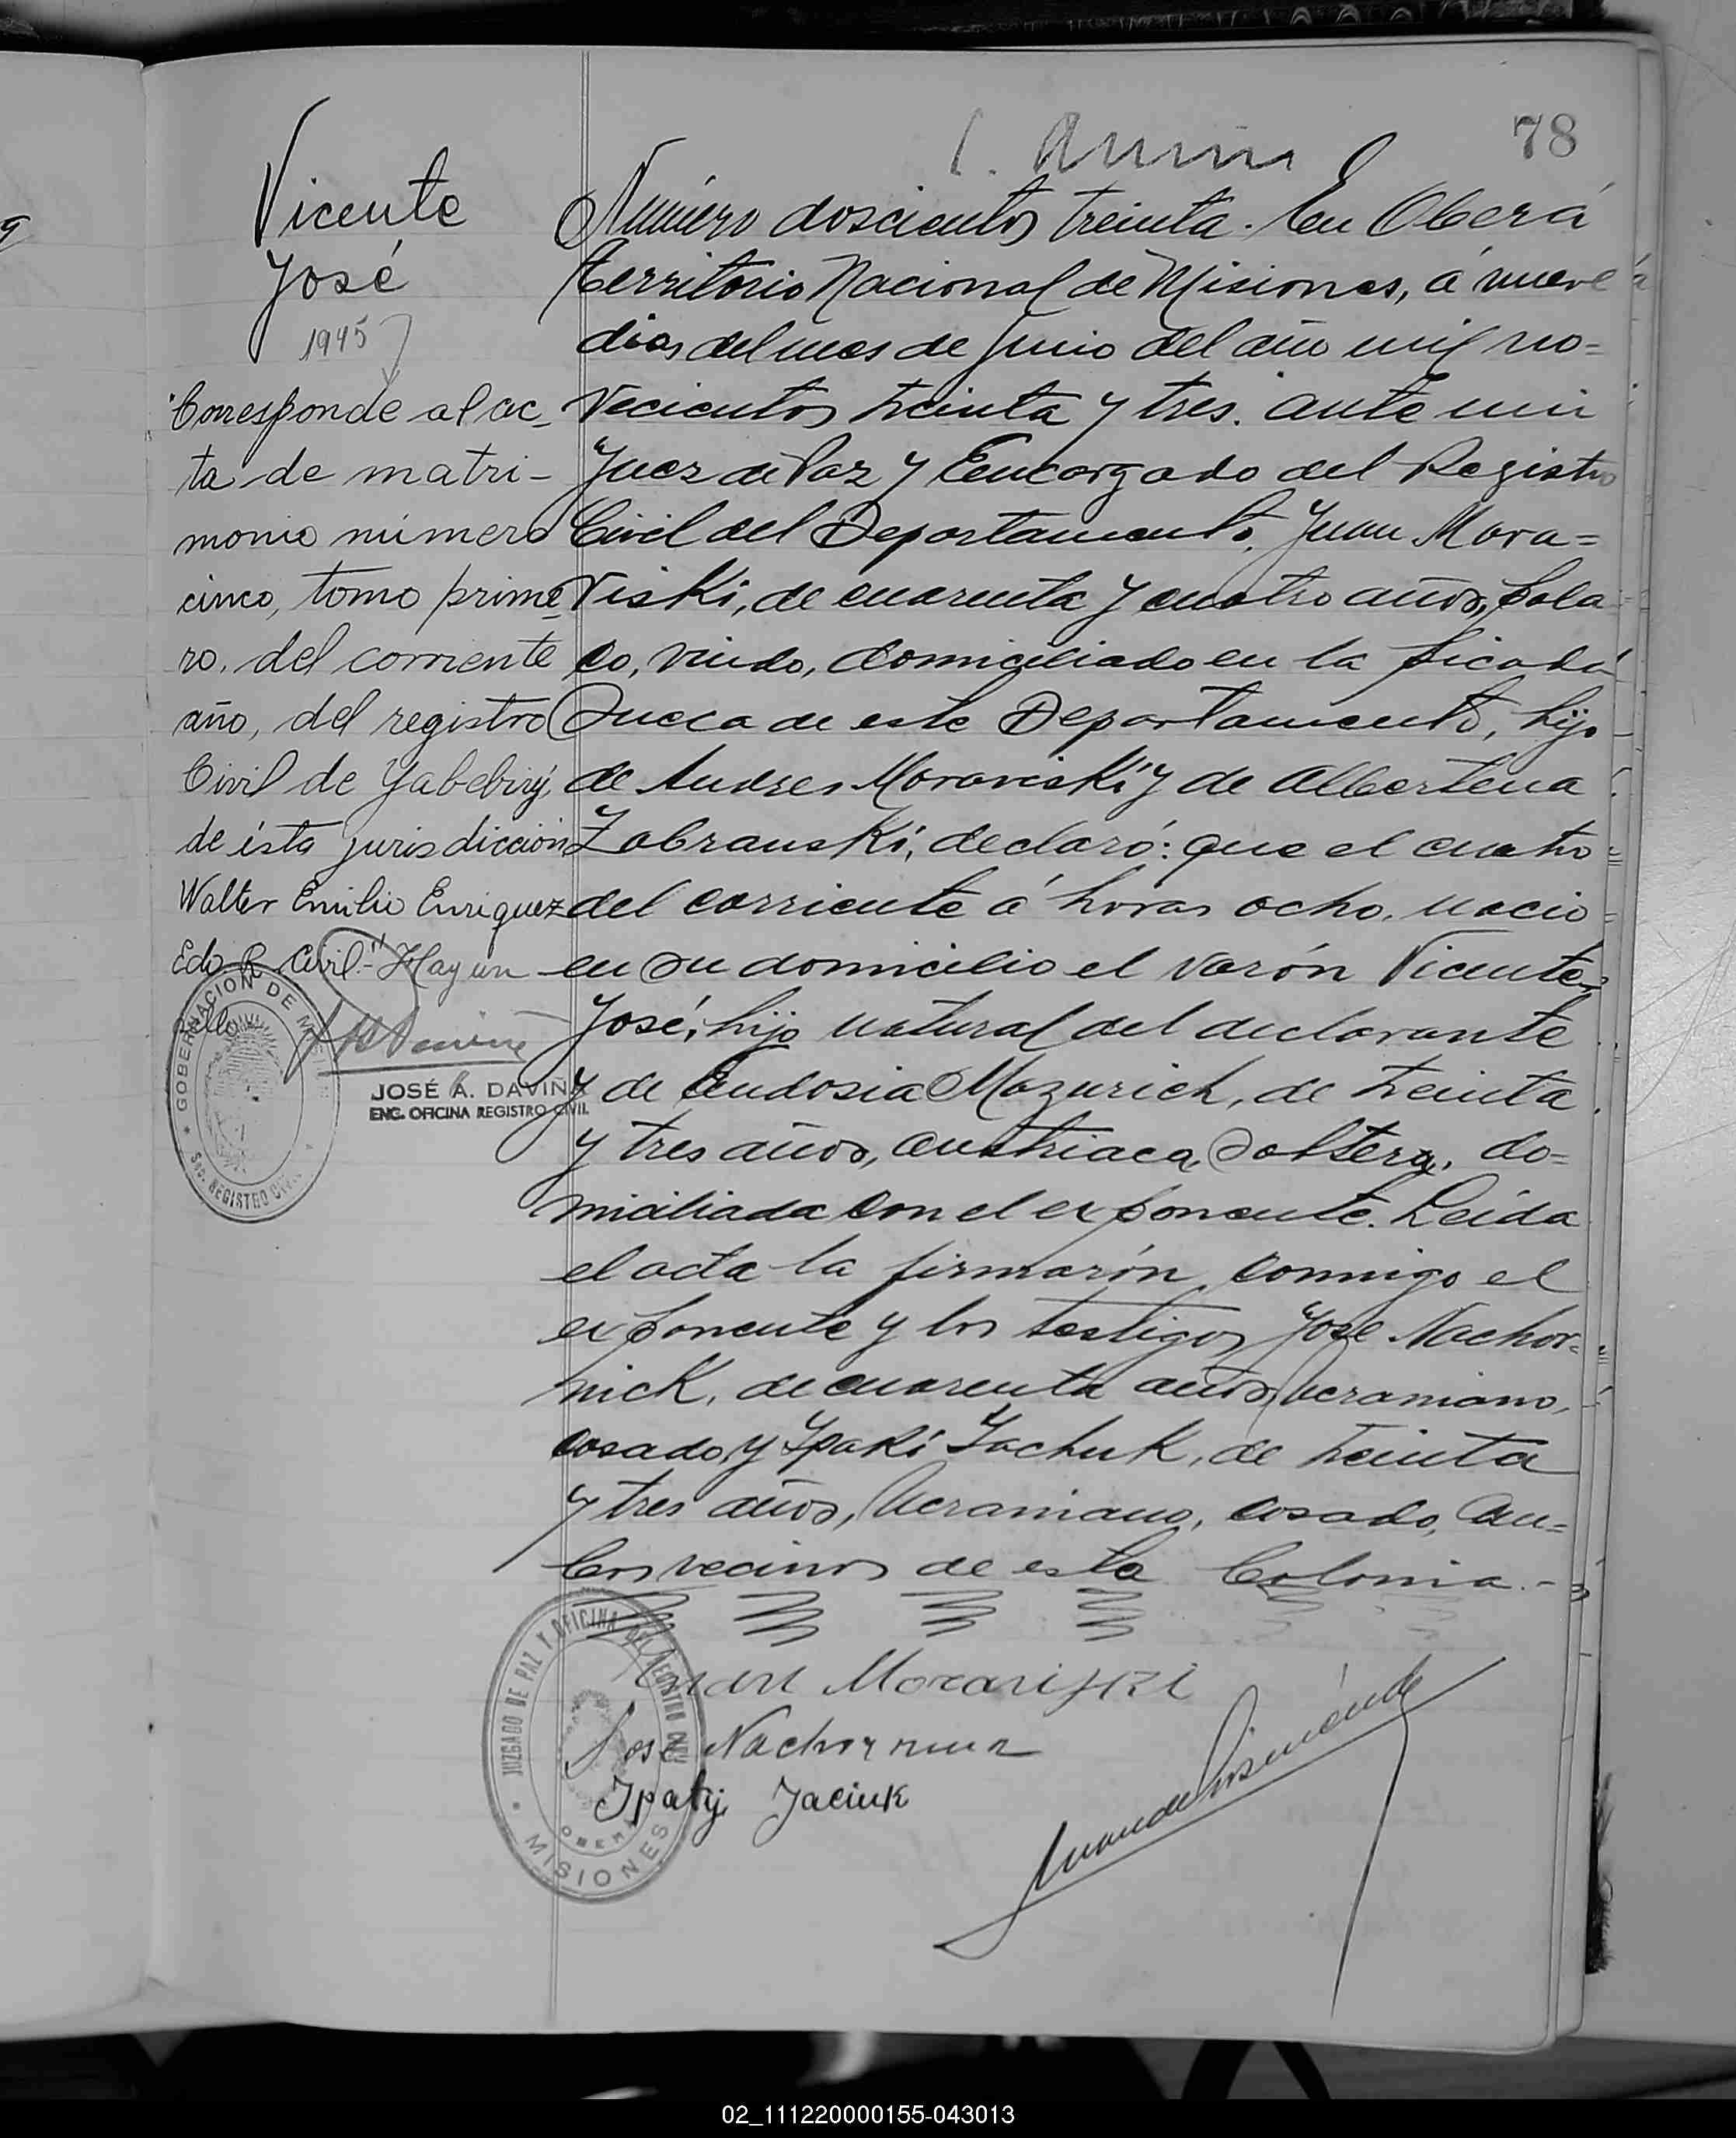 78
Vicente
José
1945
"Corresponde al ac-
ta de matri-
monio número
cinco, tomo prime-
ro, del corriente
año, del registro
Civil de Yabebirý,
de ésta jurisdicción
Walter Emilio Enriquez
Edo R. Civil"- Hay un
sello
GOBERNACION DE
REGISTRO CIVIL
JOSÉ A. DAVIÑA
ENC. OFICINA REGISTRO CIVIL
Número doscientos treinta. En Oberá
Territorio Nacional de Misiones, á nueve
dias del mes de Junio del año mil no=
vecientos treinta y tres. ante mi
Juez de Paz y Encargado del Registro
Civil del Departamento, Juan Mora=
viski, de cuarenta y cuatro años, pola
co, viudo, domiciliado en la picada
Sueca de este Departamento, hijo
de Andres Moraviski y de Albertena
Zobranski, declaró: que el cuatro
del corriente á horas ocho, nacio
en su domicilio el varón Vicente
José, hijo natural del declarante
y de Eudosia Mazurich, de treinta
y tres años, austriaca, soltera, do=
miciliada con el exponente. Leida
el acta la firmarón conmigo el
exponente y los testigos José Nachor=
nick, de cuarenta años, ucraniano,
casado y Ipaki Jachuk, de treinta
y tres años, Ucraniano, casado, am=
bos vecinos de esta Colonia.-
JUZGADO DE PAZ Y OFICINA DEL REGISTRO CIVIL
OBERA
MISIONES
Juan Moraviski
José
Ipatij Jaciuk
02_111220000155-043013